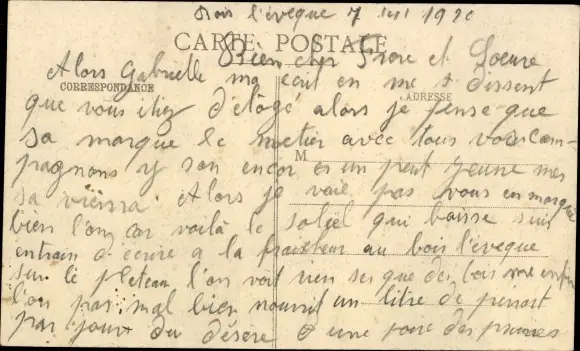 Bois l'éveque 7 1920
CARTE POSTALE
Bien cher Frore et Soeure
Alors Gabrielle ma ecrit en me disent
CORRESPONDANCE
ADRESSE
que vous étiez d'étagé alors je pense que
sa marque le metier avec tous vous com-
M
pagnons y son encor un peut jeune mes
sa viendra. Alors je vais pas vous en marque
bien l'on car voilà le soleil qui baisse suis
entrain d'écrire a la fraicheur au bois l'eveque
sur le plateau l'on voit rien ses que des bois me enfin
l'on pas mal bien nourrit un litre de
par jour du désère une des